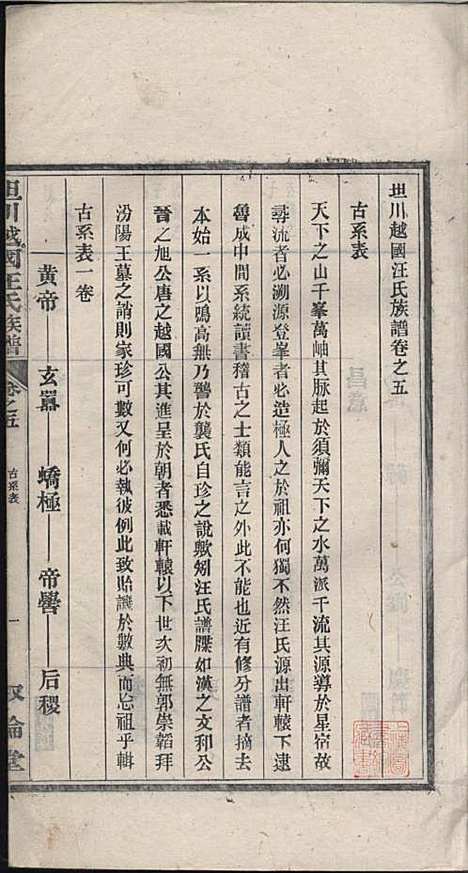 坦川越國汪氏族譜卷之五
古系表
天下之山千峯萬岫其脉起於須彌天下之水萬派千流其源導於星宿故
尋流者必溯源登峯者必造極人之於祖亦何獨不然汪氏源出軒轅下逮
魯成中間系統讀書稽古之士類能言之外此不能也近有修分譜者摘去
本始一系以鳴高無乃謷於龔氏自珍之說歟矧汪氏譜牒如漢之文和公
晉之旭公唐之越國公其進呈於朝者悉載軒轅以下世次初無郭崇韜拜
汾陽王墓之誚則家珍可數又何必執彼例此致貽譏於數典而忘祖乎輯
古系表一卷
黄帝
玄囂
蟜極
帝嚳
后稷
坦川越國汪氏族譜
卷之五
古系表
一
叙倫堂